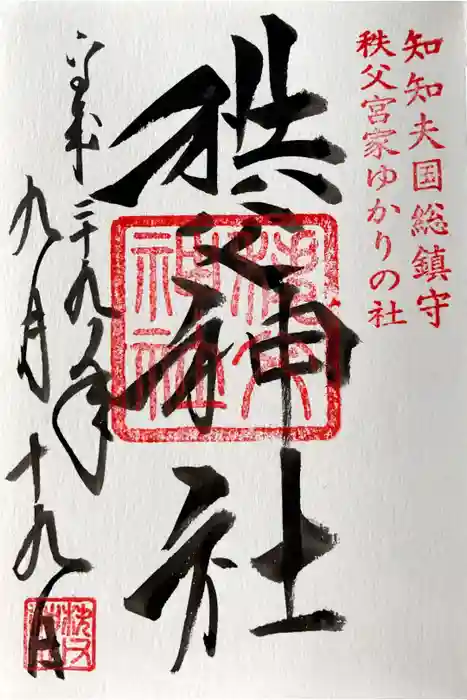 知知夫国総鎮守
秩父宮家ゆかりの社
秩父神社
平成二十九年
九月十九日
秩父神社